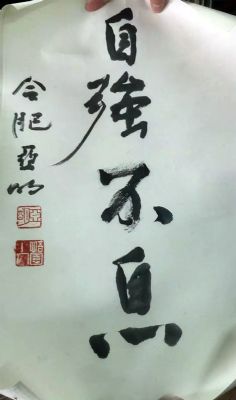 自強不息
合肥亞明